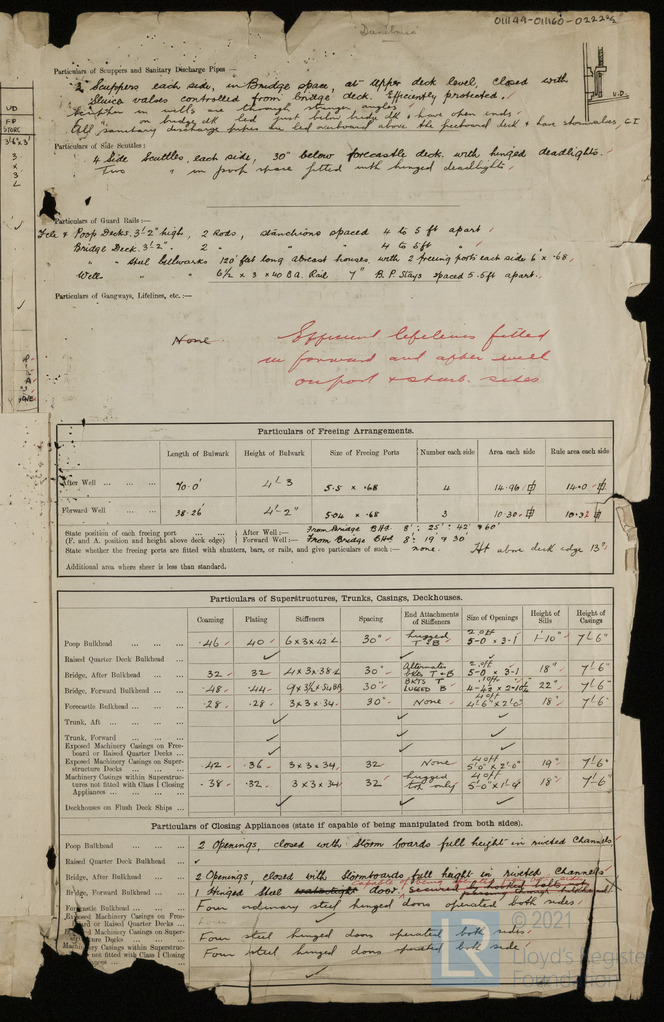 011149-011160-0222 2/2
Particulars of Scuppers and Sanitary Discharge Pipes —
2 Scuppers each side, in Bridge space, at upper deck level, closed with
Sluice valves controlled from bridge deck. Efficiently protected.
Scupper in wells are through stringer angles
on bridge dk led just below bridge dk & have open ends.
All sanitary discharge pipes are led outboard above the freeboard deck & have stormvalves, C I
U.D.
UD
F P
STORE
3'6"x3'
3
x
3
L
Particulars of Side Scuttles:
4 Side Scuttles, each side, 30" below forecastle deck. with hinged deadlights.
Two " in poop space fitted with hinged deadlights,
Particulars of Guard Rails:—
Fcle & Poop Decks. 3'-2" high, 2 Rods, stanchions spaced 4 to 5 ft apart
Bridge Deck. 3'-2" . 2 " " " 4 to 5ft "
" " Steel bulwarks 120 feet long abreast houses, with 2 freeing ports each side 6' x .68,
Wells " " 6½ x 3 x 40 B.A. Rail 7" B.P. Stays spaced 5.5ft apart.
Particulars of Gangways, Lifelines, etc. :—
None.
Efficient lifelines fitted
in forward and after well
on port & starb. sides
Particulars of Freeing Arrangements.
Length of Bulwark Height of Bulwark Size of Freeing Ports Number each side Area each side Rule area each side
After Well ... ... ... 70.0' 4'-3 5.5 x .68 4 14.96 14.0
Forward Well ... ... 38.26' 4'-2" 5.04 x .68 3 10.30 10.32
State position of each freeing port ... ... ... After Well :— From Bridge BHd. 8' : 25' : 42' & 60'
(F. and A. position and height above deck edge) Forward Well :— From Bridge BHd 8' : 19' & 30'
State whether the freeing ports are fitted with shutters, bars, or rails, and give particulars of such :— none. Ht above deck edge 13"
Additional area where sheer is less than standard.
Particulars of Superstructures, Trunks, Casings, Deckhouses.
Coaming Plating Stiffeners Spacing End Attachments of Stiffeners Size of Openings Height of Sills Height of Casings
Poop Bulkhead ... ... ... .46 .40 6 x 3 x 42 L 30" lugged T & B 2 off 5-0 x 3-1 1'-10" 7'-6"
Raised Quarter Deck Bulkhead ...
Bridge, After Bulkhead ... ... .32 .32 4 x 3 x 38 L 30" Alternate bkts T & B 2 off 5-0 x 3-1 18" 7'-6"
Bridge, Forward Bulkhead ... ... .48 .44 30" BKTS T LUGGED B 22" 7'-6"
Forecastle Bulkhead ... ... ... .28 .28 3 x 3 x .34 30" None 4 off 4'6" x 2'0" 18" 7'-6"
Trunk, Aft ... ... ... ...
Trunk, Forward ... ... ...
Exposed Machinery Casings on Free-
board or Raised Quarter Decks ...
Exposed Machinery Casings on Super-
structure Decks ... ... ... .42 .36 3 x 3 x 34 32 None 4 off 5'0" x 2'0" 19" 7'-6"
Machinery Casings within Superstruc-
tures not fitted with Class I Closing
Appliances ... ... ... ... .38 .32 3 x 3 x 34 32 lugged top only 4 off 18" 7'-6"
Deckhouses on Flush Deck Ships ...
Particulars of Closing Appliances (state if capable of being manipulated from both sides).
Poop Bulkhead ... ... ... 2 Openings, closed with Storm boards full height in riveted Channels
Raised Quarter Deck Bulkhead ...
Bridge, After Bulkhead ... ... 2 Openings, closed with Stormboards full height in riveted Channels
capable of being operated
Bridge, Forward Bulkhead ... ... 1 Hinged Steel watertight door, secured by hooked bolts
Forecastle Bulkhead ... ... Four ordinary steel hinged doors operated both sides
Exposed Machinery Casings on Free-
board or Raised Quarter Decks ...
Exposed Machinery Casings on Super-
structure Decks ... ... ... Four steel hinged doors operated both sides.
Machinery Casings within Superstruc-
tures not fitted with Class I Closing Four steel hinged doors operated both side
© 2021
LR
Lloyd's Register
Foundation